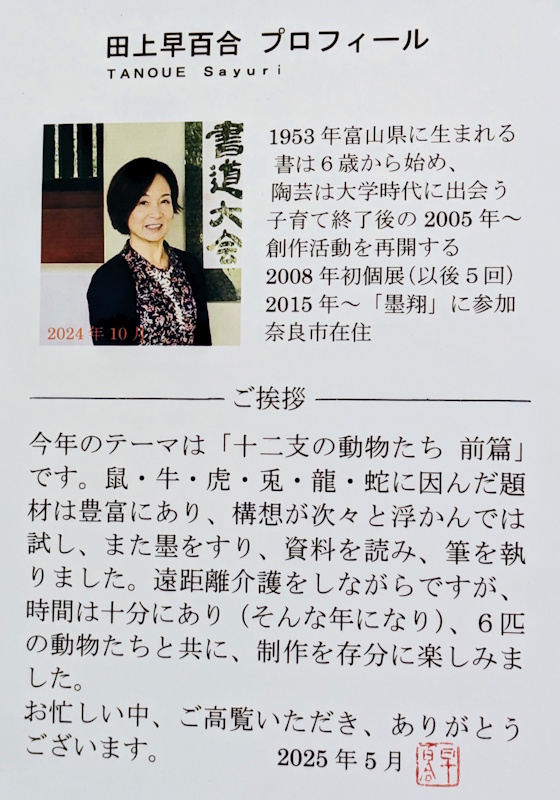 田上早百合 プロフィール
TANOUE Sayuri
書道大会
2024年10月
1953年富山県に生まれる
書は6歳から始め、
陶芸は大学時代に出会う
子育て終了後の2005年～
創作活動を再開する
2008年初個展(以後5回)
2015年～「墨翔」に参加
奈良市在住
ご挨拶
今年のテーマは「十二支の動物たち 前篇」
です。鼠・牛・虎・兎・龍・蛇に因んだ題
材は豊富にあり、構想が次々と浮かんでは
試し、また墨をすり、資料を読み、筆を執
りました。遠距離介護をしながらですが、
時間は十分にあり（そんな年になり）、６匹
の動物たちと共に、制作を存分に楽しみま
した。
お忙しい中、ご高覧いただき、ありがとう
ございます。
2025年5月
早百合